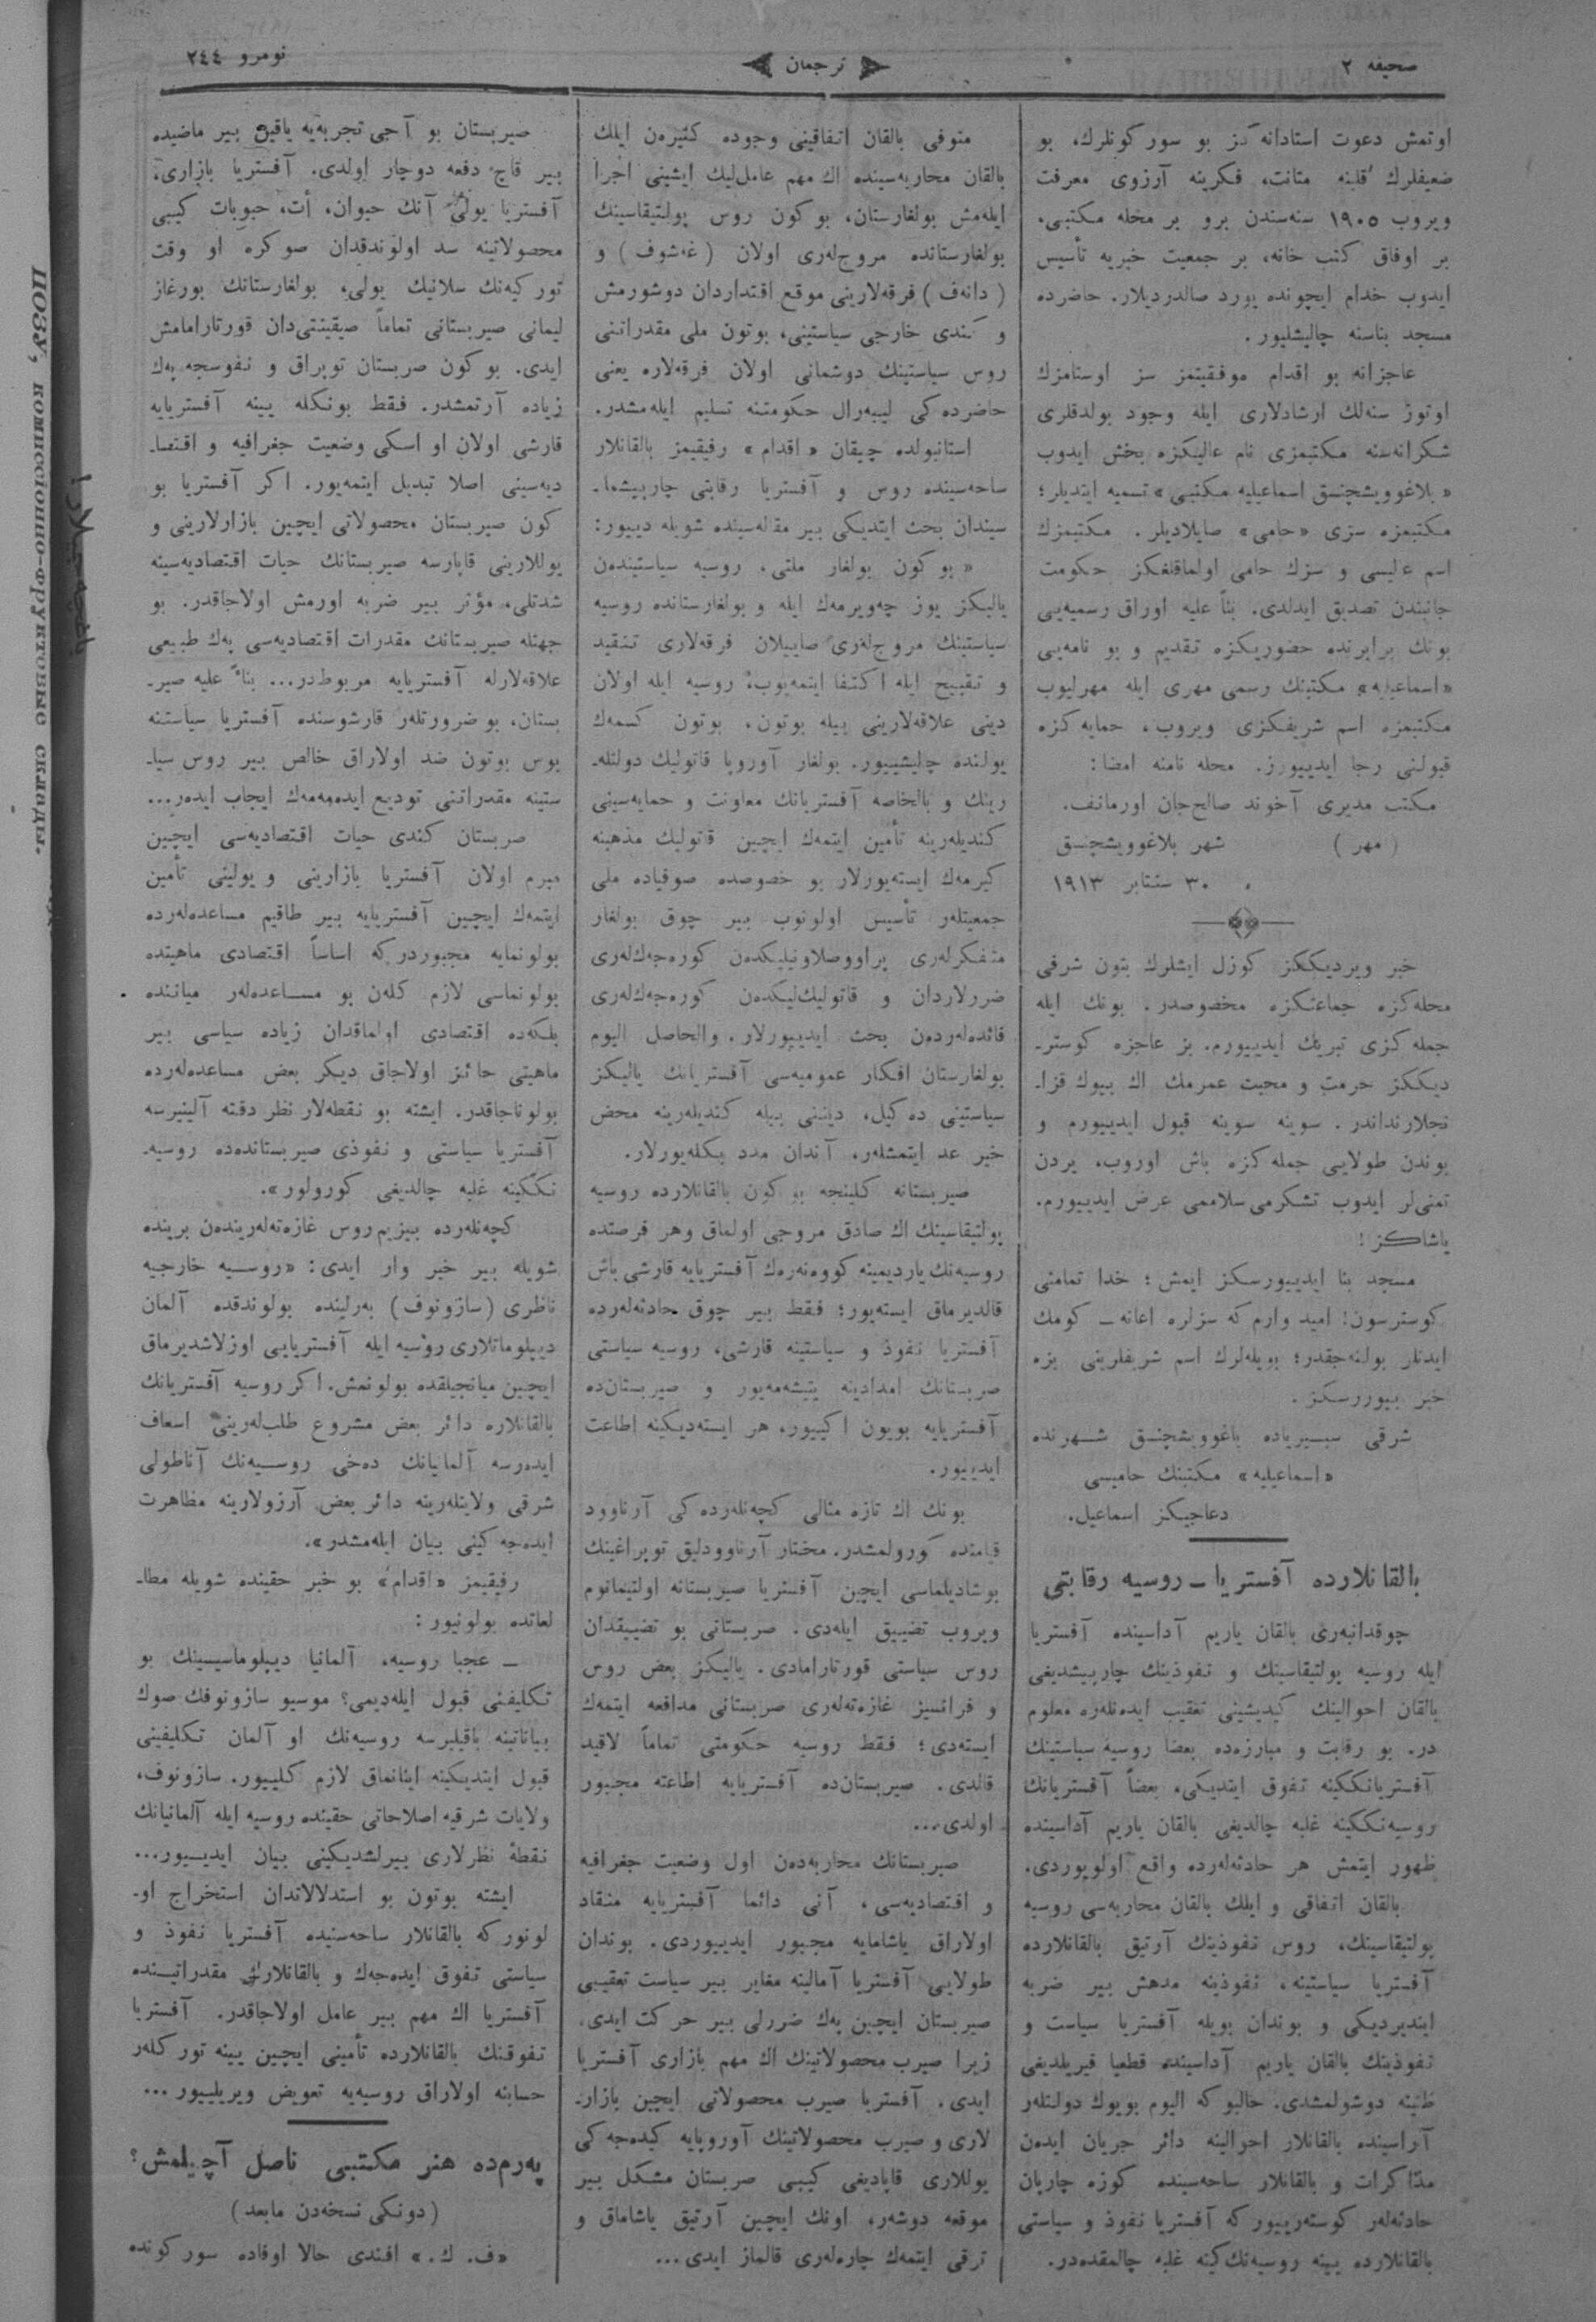 صحیفه ٢
ترجمان
نومرو ٢٤٤
اوتمش دعوت استادانه‌كز بو سور كونلرك، بو
ضعیفلرك قلبنه متانت، فكرینه آرزوی معرفت
ویروب ١٩٠٥ سنه‌سندن برو بر محله مكتبی،
بر اوفاق كتب خانه، بر جمعیت خیریه تأسیس
ایدوب خدام ایچونده یورد صالدردیلار. حاضرده
مسجد بناسنه چالیشلیور.
عاجزانه بو اقدام موفقیتمز سز اوستامزك
اوتوز سنه‌لك ارشادلاری ایله وجود بولدقلری
شكرانه‌سنه مكتبمزی نام عالیكزه بخش ایدوب
«بلاغوویشچنسق اسماعیلیه مكتبی» تسمیه ایتدیلر؛
مكتبمزه سزی «حامی» صایلادیلر. مكتبمزك
اسم عالیسی و سزك حامی اولماقلغكز حكومت
جانبندن تصدیق ایدلدی. بناً علیه اوراق رسمیه‌یی
بونك برابرنده حضوریكزه تقدیم و بو نامه‌یی
«اسماعیلیه» مكتبنك رسمی مهری ایله مهرلیوب
مكتبمزه اسم شریفكزی ویروب، حمایه‌كزه
قبولنی رجا ایدییورز. محله نامنه امضا:
مكتب مدیری آخوند صالح‌جان اورمانف.
(مهر) شهر بلاغوویشچنسق
٣٠ سنتابر ١٩١٣
خبر ویردیككز كوزل ایشلرك بتون شرقی
محله‌كزه جماعتكزه مخصوصدر. بونك ایله
جمله‌كزی تبریك ایدییورم. بز عاجزه كوستر-
دیككز حرمت و محبت عمرمك اك بیوك قزا-
نجلارنداندر. سوینه سوینه قبول ایدییورم و
بوندن طولایی جمله‌كزه باش اوروب، یردن
تمنی‌لر ایدوب تشكرمی سلاممی عرض ایدییورم.
یاشاكز!
مسجد بنا ایدییورسكز ایمش؛ خدا تمامنی
كوسترسون! امید وارم كه سزلره اعانه - كومك
ایدنلر بولنه‌جقدر؛ بویله‌لرك اسم شریفلرینی بزه
خبر بیوررسكز.
شرقی سبیریاده باغوویشچنسق شهرنده
«اسماعیلیه» مكتبنك حامیسی
دعاجیكز اسماعیل.
بالقانلارده آفستریا - روسیه رقابتی
چوقدانبه‌ری بالقان یاریم آداسینده آفستریا
ایله روسیه پولتیقاسینك و نفوذینك چارپیشدیغی
بالقان احوالینك كیدیشینی تعقیب ایده‌نله‌ره معلوم
در. بو رقابت و مبارزه‌ده بعضاً روسیه سیاستینك
آفستریانككینه تفوق ایتدیكی، بعضاً آفستریانك
روسیه‌نككینه غلبه چالدیغی بالقان یاریم آداسینده
ظهور ایتمش هر حادثه‌له‌رده واقع اولویوردی.
بالقان اتفاقی و ایلك بالقان محاربه‌سی روسیه
پولتیقاسینك، روس نفوذینك آرتیق بالقانلارده
آفستریا سیاستینه، نفوذینه مدهش بیر ضربه
ایندیردیكی و بوندان بویله آفستریا سیاست و
نفوذینك بالقان یاریم آداسینده قطعیا قیریلدیغی
ظنینه دوشولمشدی. حالبو كه الیوم بویوك دولتله‌ر
آراسینده بالقانلار احوالینه دائر جریان ایده‌ن
مذاكرات و بالقانلار ساحه‌سینده كوزه چارپان
حادثه‌له‌ر كوسته‌رییور كه آفستریا نفوذ و سیاستی
بالقانلارده یینه روسیه‌نك‌كینه غلبه چالمقده‌در.
متوفی بالقان اتفاقینی وجوده كتیره‌ن ایلك
بالقان محاربه‌سینده اك مهم عامل‌لیك ایشینی اجرا
ایله‌مش بولغارستان، بو كون روس پولتیقاسینك
بولغارستانده مروج‌له‌ری اولان (غه‌شوف) و
(دانه‌ف) فرقه‌لارینی موقع اقتداردان دوشورمش
و كندی خارجی سیاستینی، بوتون ملی مقدراتنی
روس سیاستینك دوشمانی اولان فرقه‌لاره یعنی
حاضرده‌كی لیبه‌رال حكومتنه تسلیم ایله‌مشدر.
استانبولده چیقان «اقدام» رفیقیمز بالقانلار
ساحه‌سینده روس و آفستریا رقابتی چارپیشما-
سیندان بحث ایتدیكی بیر مقاله‌سینده شویله دییور:
«بو كون بولغار ملتی، روسیه سیاستیندەن
یالیكز یوز چه‌ویرمه‌ك ایله و بولغارستانده روسیه
سیاستینك مروج‌له‌ری صاییلان فرقه‌لاری تنقید
و تقبیح ایله اكتفا ایتمه‌یوب، روسیه ایله اولان
دینی علاقه‌لارینی بیله بوتون، بوتون كسمه‌ك
یولنده چالیشییور. بولغار آوروپا قاتولیك دولتله-
رینك و بالخاصه آفستریانك معاونت و حمایه‌سینی
كندیله‌رینه تأمین ایتمه‌ك ایچین قاتولیك مذهبینه
كیرمه‌ك ایسته‌یورلار بو خصوصده صوفیاده ملی
جمعیتله‌ر تأسیس اولونوب بیر چوق بولغار
متفكرله‌ری پراووصلاونیلیكدەن كوره‌جه‌ك‌له‌ری
ضررلاردان و قاتولیك‌لیكدەن كوره‌جه‌ك‌له‌ری
فائده‌له‌ردەن بحث ایدییورلار. والحاصل الیوم
بولغارستان افكار عمومیه‌سی آفستریانك یالیكز
سیاستینی ده‌كیل، دینینی بیله كندیله‌رینه محض
خیر عد ایتمشله‌ر، آندان مدد بكله‌یورلار.
صیربستانه كلینجه بو كون بالقانلارده روسیه
پولتیقاسینك اك صادق مروجی اولماق وهر فرصتده
روسیه‌نك یاردیمینه كووه‌نه‌ره‌ك آفستریایه قارشی باش
قالدیرماق ایسته‌یور؛ فقط بیر چوق حادثه‌له‌رده
آفستریا نفوذ و سیاستینه قارشی، روسیه سیاستی
صربستانك امدادینه یتیشه‌مه‌یور و صیربستان‌ده
آفستریایه بویون اكییور، هر ایسته‌دیكینه اطاعت
ایدییور.
بونك اك تازه مثالی كچه‌نله‌رده‌كی آرناوود
قیامنده كورولمشدر. مختار آرناوودلیق توپراغینك
بوشادیلماسی ایچین آفستریا صیربستانه اولتیماتوم
ویروب تضییق ایله‌دی. صربستانی بو تضییقدان
روس سیاستی قورتارامادی. یالیكز بعض روس
و فرانسیز غازه‌ته‌له‌ری صربستانی مدافعه ایتمه‌ك
ایسته‌دی؛ فقط روسیه حكومتی تماماً لاقید
قالدی. صیربستان‌ده آفستریایه اطاعته مجبور
اولدی...
صیربستانك محاربه‌دەن اول وضعیت جغرافیه
و اقتصادیه‌سی، آنی دائما آفستریایه منقاد
اولاراق یاشامایه مجبور ایدییوردی. بوندان
طولایی آفستریا آمالینه مغایر بیر سیاست تعقیبی
صیربستان ایچین په‌ك ضررلی بیر حركت ایدی.
زیرا صیرب محصولاتینك اك مهم بازاری آفستریا
ایدی. آفستریا صیرب محصولاتی ایچین بازار-
لاری و صیرب محصولاتینك آوروپایه كیده‌جه‌كی
یوللاری قاپادیغی كیبی صربستان مشكل بیر
موقعه دوشه‌ر، اونك ایچین آرتیق یاشاماق و
ترقی ایتمه‌ك چاره‌له‌ری قالماز ایدی...
صیربستان بو آجی تجربه‌یه یاقین بیر ماضیده
بیر قاچ دفعه دوچار اولدی. آفستریا بازاری،
آفستریا یولی آنك حیوان، أت، حبوبات كیبی
محصولاتینه سد اولوندقدان صوكره او وقت
توركیه‌نك سلانیك یولی، بولغارستانك بورغاز
لیمانی صیربستانی تماماً صیقینتی‌دان قورتارامامش
ایدی. بو كون صربستان توپراق و نفوسجه په‌ك
زیاده آرتمشدر. فقط بونكله یینه آفستریایه
قارشی اولان او اسكی وضعیت جغرافیه و اقتصا-
دیه‌سینی اصلا تبدیل ایتمه‌یور. اكر آفستریا بو
كون صیربستان محصولاتی ایچین بازارلارینی و
یوللارینی قاپارسه صیربستانك حیات اقتصادیه‌سینه
شدتلی، مؤثر بیر ضربه اورمش اولاجاقدر. بو
جهتله صیربستانك مقدرات اقتصادیه‌سی په‌ك طبیعی
علاقه‌لارله آفستریایه مربوطدر... بناءً علیه صیر-
بستان، بو ضرورتله‌ر قارشوسنده آفستریا سیاستنه
بوس بوتون ضد اولاراق خالص بیر روس سیا-
ستینه مقدراتنی تودیع ایده‌مه‌مه‌ك ایجاب ایده‌ر...
صربستان كندی حیات اقتصادیه‌سی ایچین
مبرم اولان آفستریا بازارینی و یولینی تأمین
ایتمه‌ك ایچین آفستریایه بیر طاقیم مساعده‌له‌رده
بولونمایه مجبوردر كه اساساً اقتصادی ماهیتده
بولونماسی لازم كله‌ن بو مساعده‌له‌ر میاننده
بلكه‌ده اقتصادی اولماقدان زیاده سیاسی بیر
ماهیتی حائز اولاجاق دیكر بعض مساعده‌له‌رده
بولوناجاقدر. ایشته بو نقطه‌لار نظر دقته آلینیرسه
آفستریا سیاستی و نفوذی صیربستانده‌ده روسیه-
نككینه غلبه چالدیغی كورولور».
كچه‌نله‌رده بیزیم روس غازه‌ته‌له‌ریندەن برینده
شویله بیر خبر وار ایدی: «روسیه خارجیه
ناظری (سازونوف) به‌رلینده بولوندقده آلمان
دیپلوماتلاری روسیه ایله آفستریایی اوزلاشدیرماق
ایچین میانجیلقده بولونمش. اكر روسیه آفستریانك
بالقانلاره دائر بعض مشروع طلب‌له‌رینی اسعاف
ایده‌رسه آلمانیانك ده‌خی روسیه‌نك آناطولی
شرقی ولایتله‌رینه دائر بعض آرزولارینه مظاهرت
ایده‌جه‌كینی بیان ایله‌مشدر».
رفیقیمز «اقدام» بو خبر حقینده شویله مطا-
لعاتده بولونیور:
- عجبا روسیه، آلمانیا دیپلوماسیسینك بو
تكلیفنی قبول ایله‌دیمی؟ موسیو سازونوفك صوك
بیاناتینه باقیلیرسه روسیه‌نك او آلمان تكلیفینی
قبول ایتدیكینه اینانماق لازم كلییور. سازونوف،
ولایات شرقیه اصلاحاتی حقینده روسیه ایله آلمانیانك
نقطهٔ نظرلاری بیرلشدیكینی بیان ایدییور...
ایشته بوتون بو استدلالاتدان استخراج او-
لونور كه بالقانلار ساحه‌سینده آفستریا نفوذ و
سیاستی تفوق ایده‌جه‌ك و بالقانلارك مقدراتینده
آفستریا اك مهم بیر عامل اولاجاقدر. آفستریا
تفوقنك بالقانلارده تأمینی ایچین یینه توركله‌ر
حسابنه اولاراق روسیه‌یه تعویض ویریلییور...
په‌رم‌ده هنر مكتبی ناصل آچیلمش؟
(دونكی نسخه‌دن مابعد)
«ف. ك.» افندی حالا اوفاده سوركونده
ПОЗУ, комиссіонно-фруктовые склады.
باغچه‌چیلار!